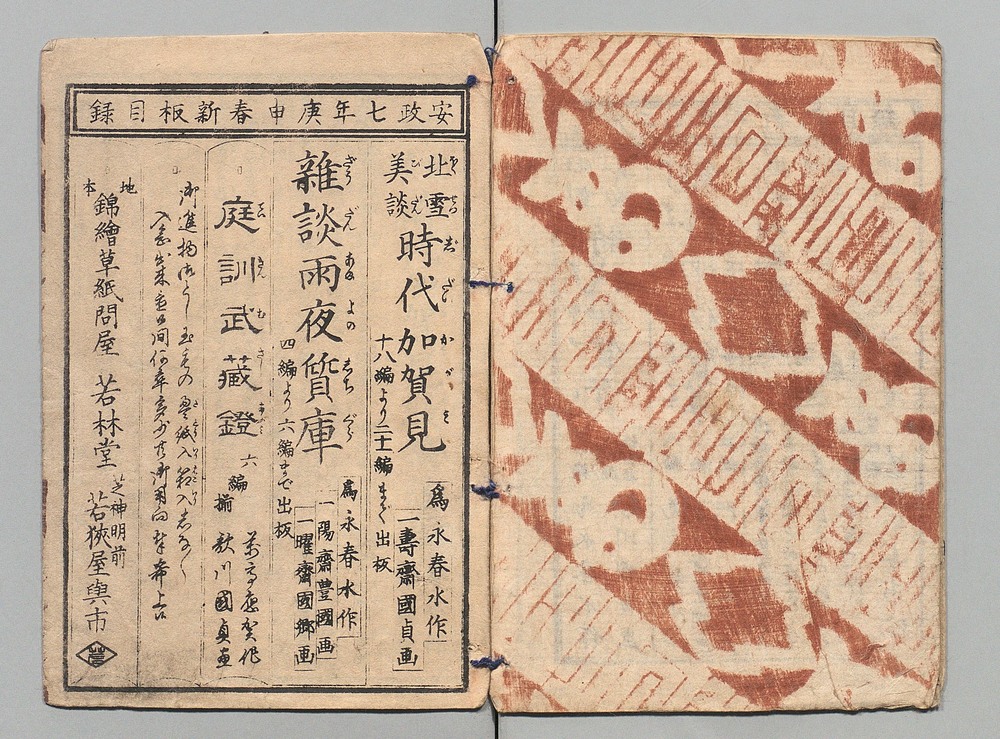 安政七年庚申春新板目録
北雪美談 時代加賀見 十八編より二十一編まで出板 爲永春水作 一壽齋國貞画
雜談雨夜質庫 四編より六編まで出板 爲永春水作 一陽齋豊國画 一曜齋國郷画
庭訓武藏鐙 六編揃 万亭應賀作 歌川國貞画
地本 錦繪草紙問屋 若林堂 芝神明前 若狹屋與市